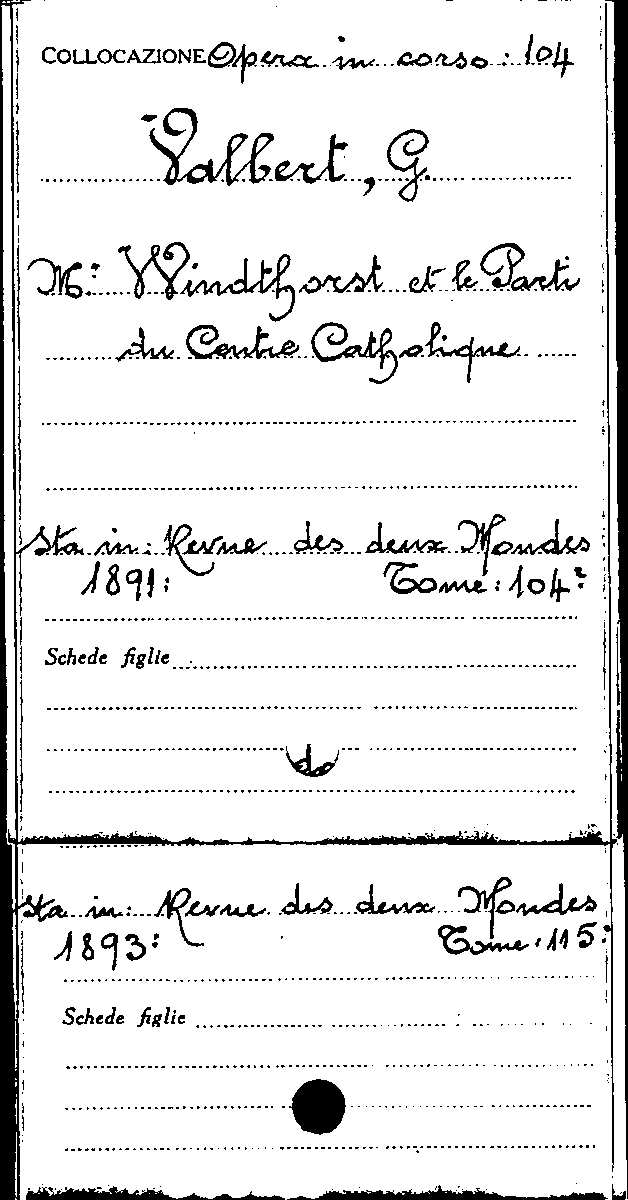 COLLOCAZIONE Opera in corso: 104
Valbert, G.
Mr: Windthorst et le Parti
du Centre Catholique
Sta in: Revue des deux Mondes
1891: Tome: 104:
Schede figlie
Sta in: Revue des deux Mondes
1893: Tome: 115:
Schede figlie